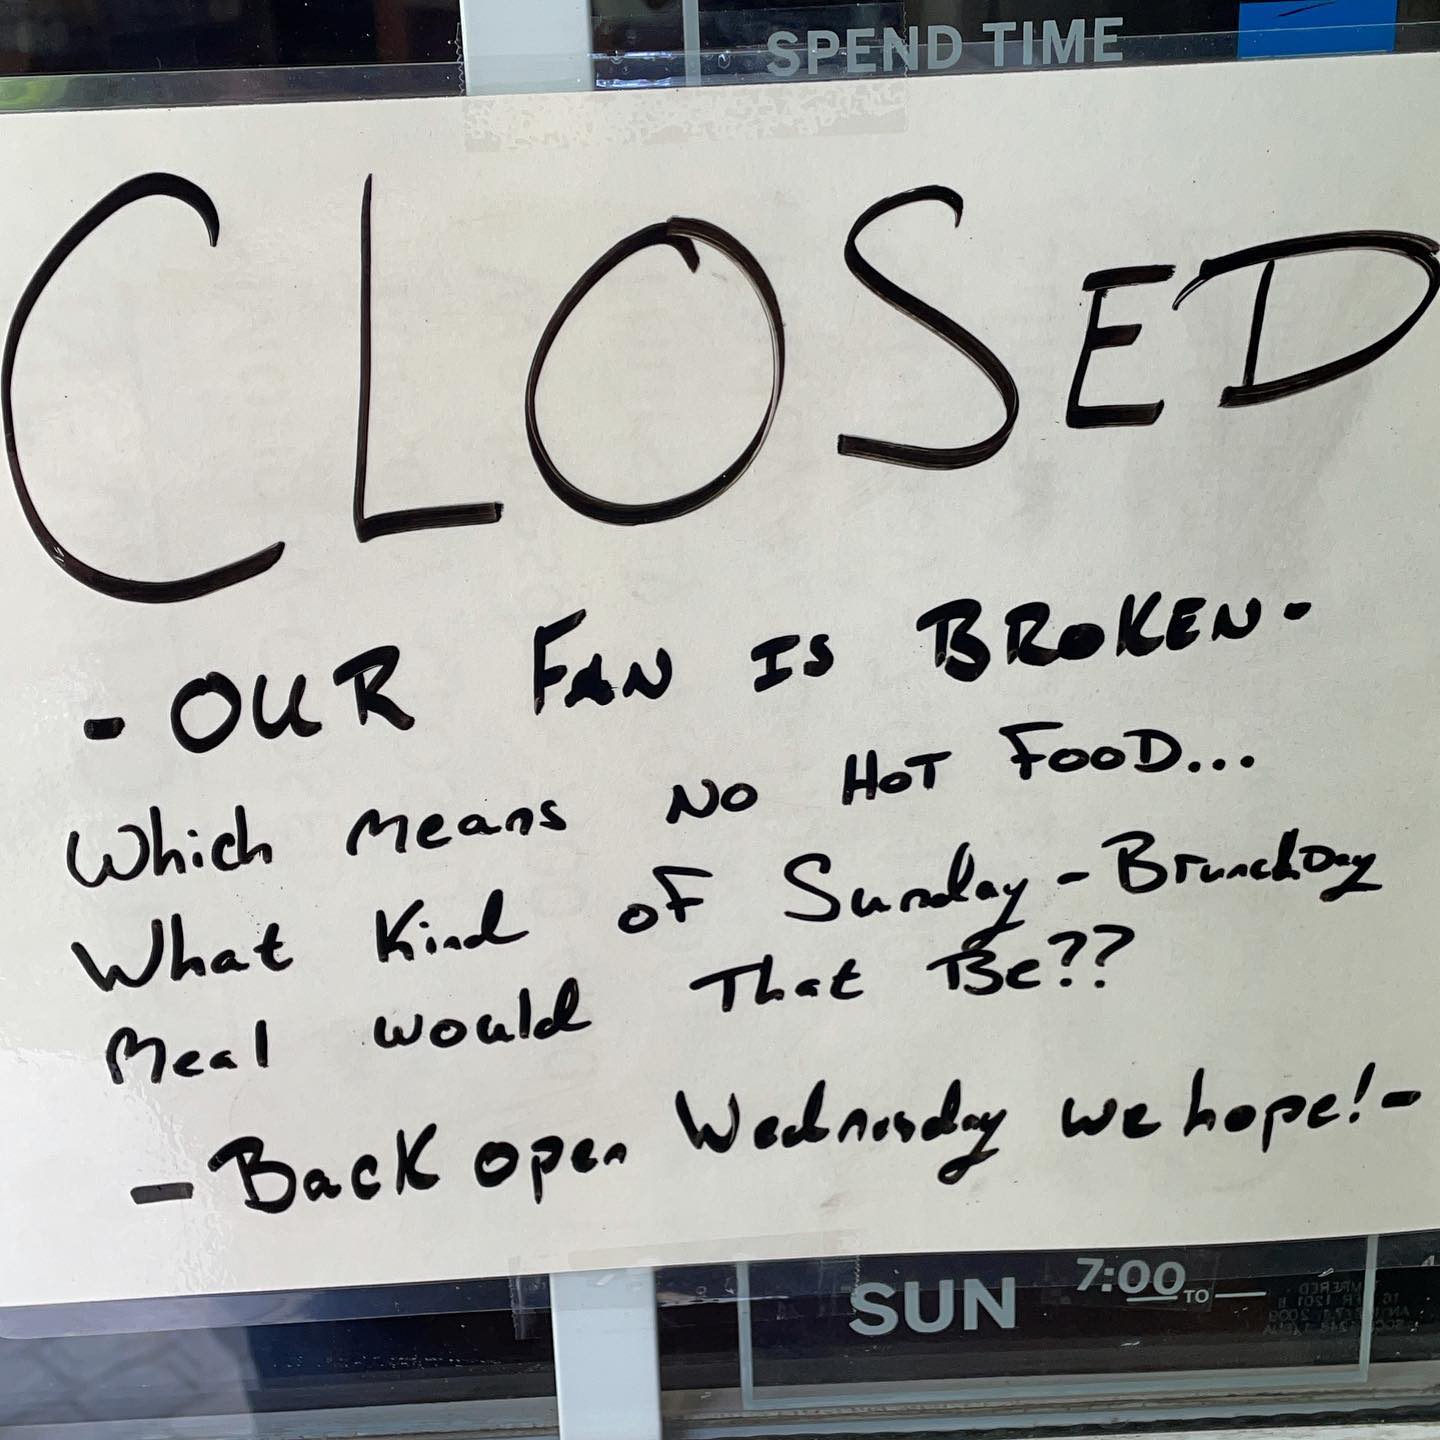 SPEND TIME
CLOSED
- OUR FAN IS BROKEN -
Which means NO HOT FOOD...
What Kind of Sunday - BrunchDay
Meal would That Be??
- Back open Wednesday we hope! -
SUN 7:00 TO —